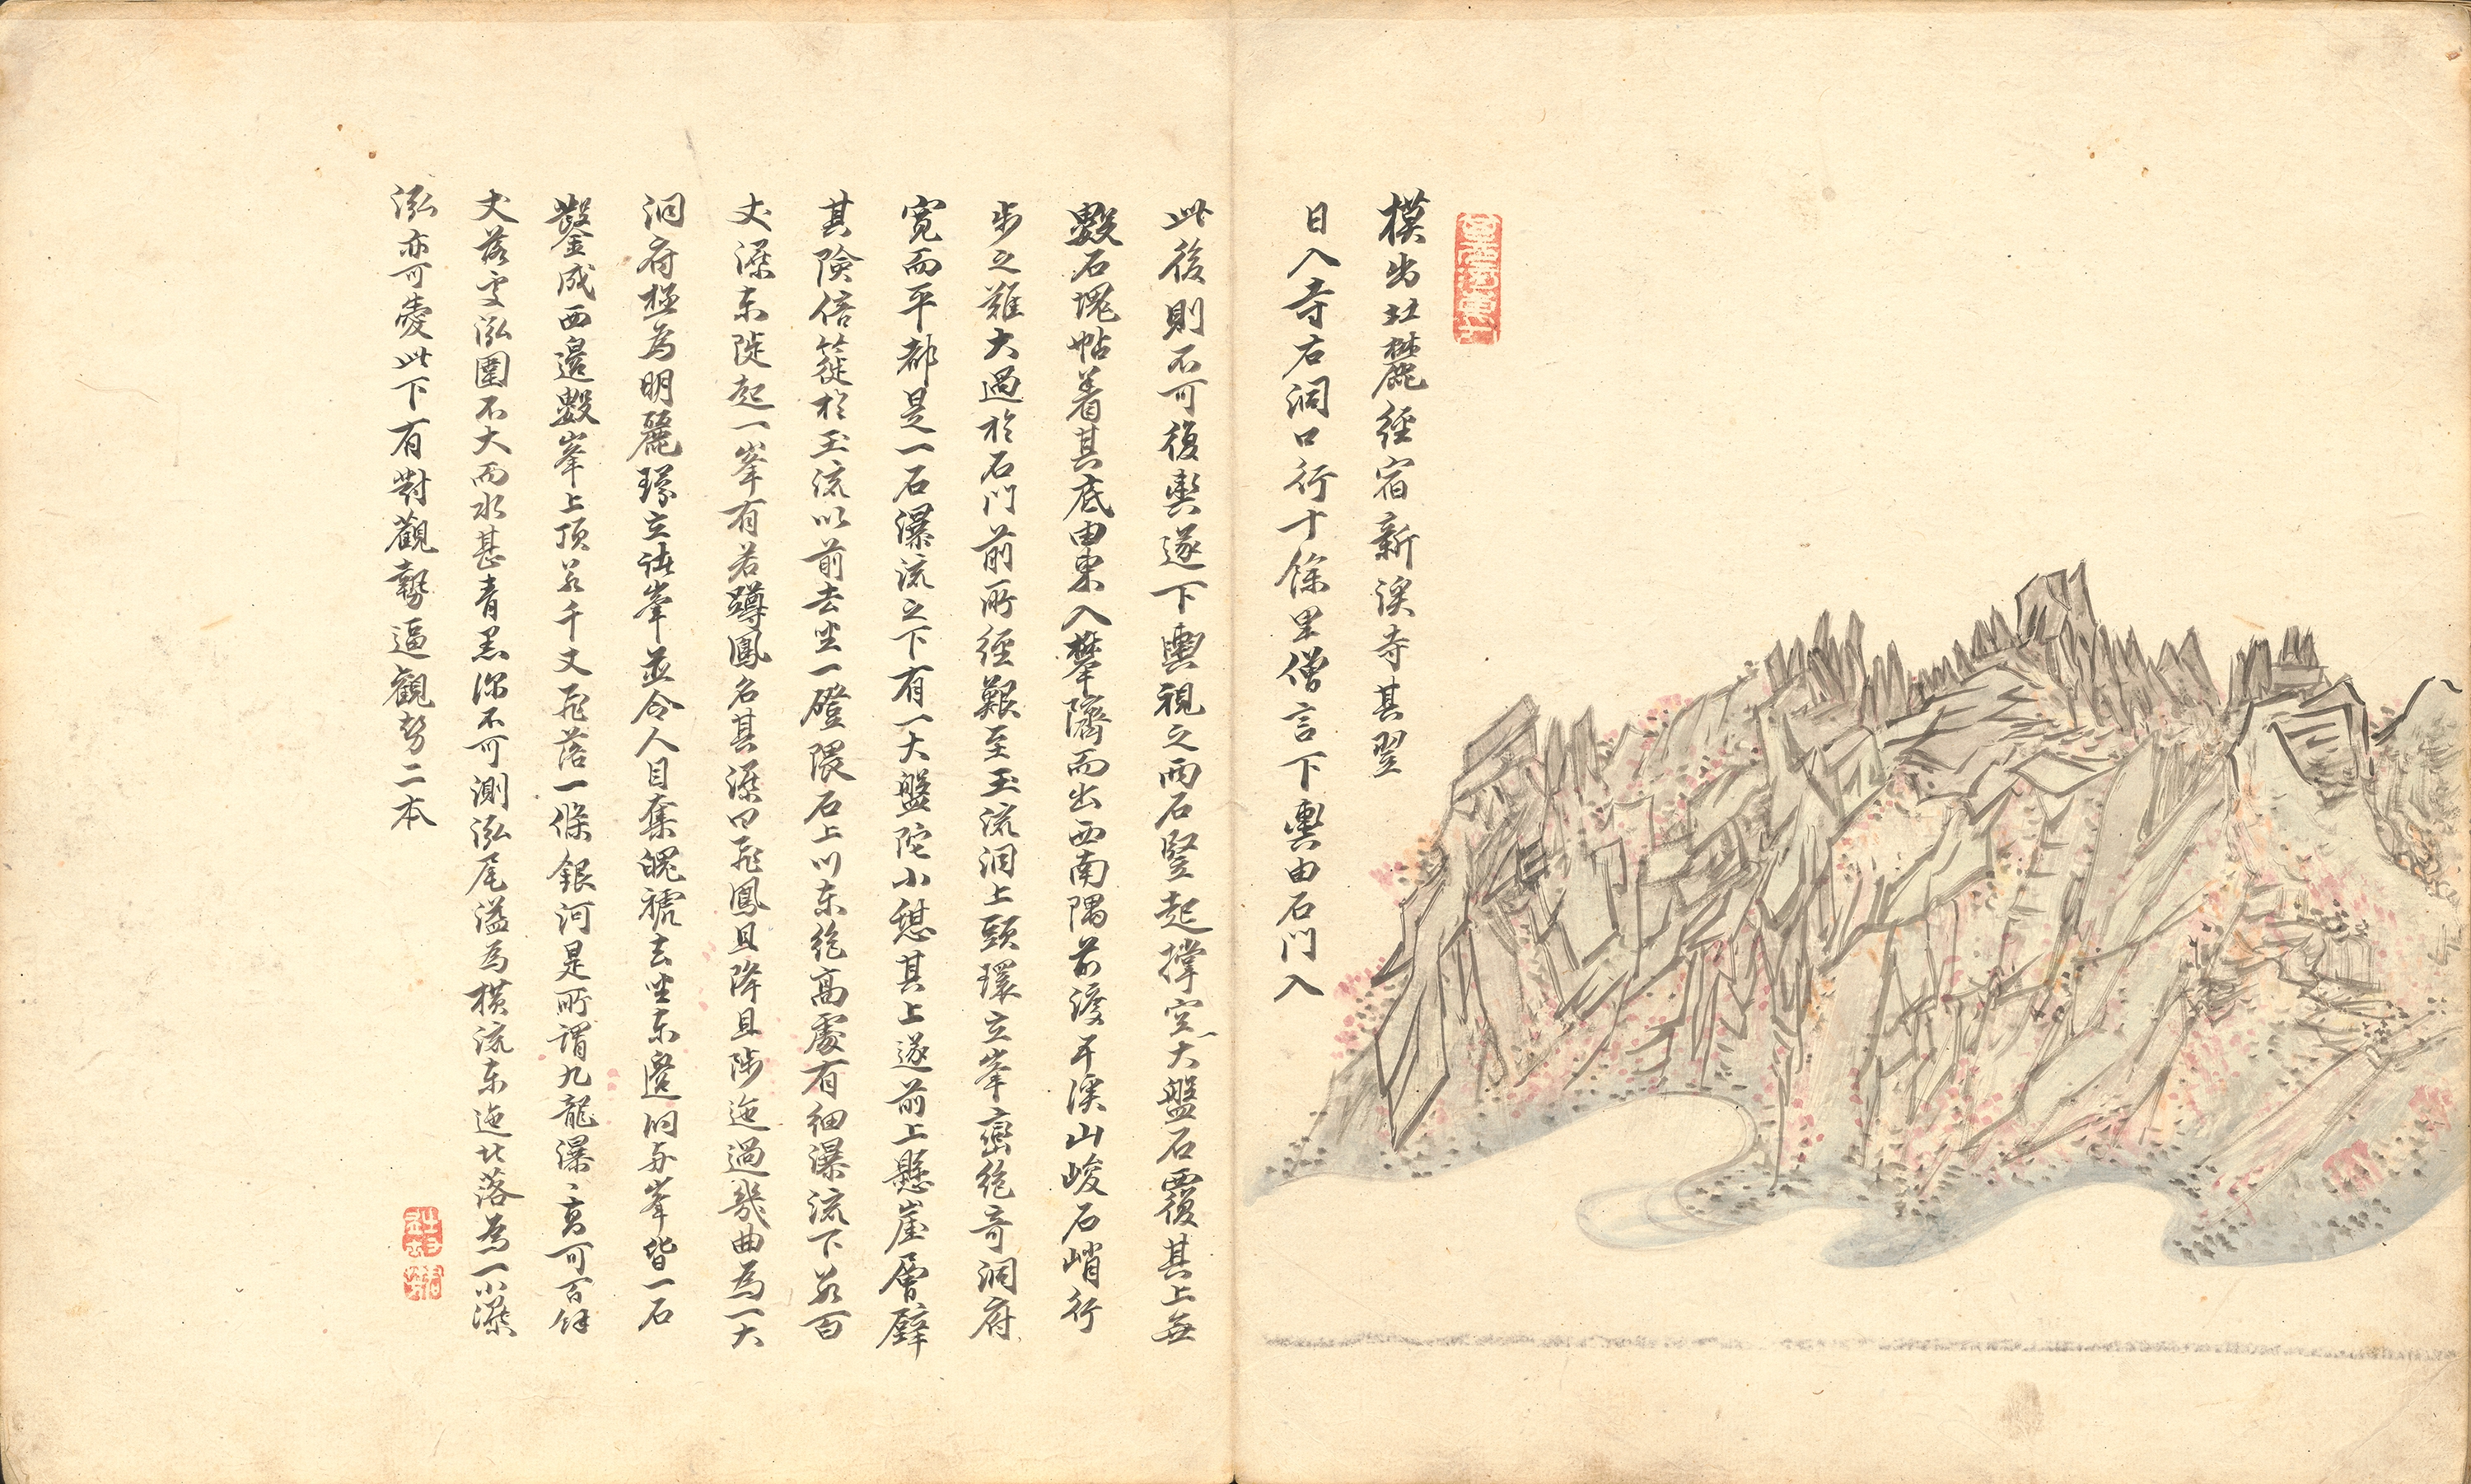 模出北麓經宿新溪寺其翌
日入寺右洞口行十餘里僧言下輿由石門入
此後則不可復輿遂下輿視之兩石竪起撑空大盤石覆其上無
數石塊帖着其底由東入攀隮而出西南隅前渡一溪山峻石峭行
步之難大過於石門前所經艱至玉流洞上頭環立峯巒絶奇洞府
寬而平都是一石瀑流之下有一大盤陀小憩其上遂前上懸崖層壁
其險倍簁於玉流以前去坐一磴隈石上川東絶高處有細瀑流下若百
丈深東陡起一峯有若蹲鳳名其潭曰飛鳳且降且陟迤過幾曲為一大
洞府極為明麗環立諸峯並令人目奪魄褫去坐東邊洞與峯皆一石
鑿成西邊數峯上頂若千丈飛落一條銀河是所謂九龍瀑、高可百餘
丈落处泓圍不大而水甚青黑深不可測泓尾溢為橫流東迤北落為一小潭
泓亦可愛此下有對觀勢逼觀勢二本